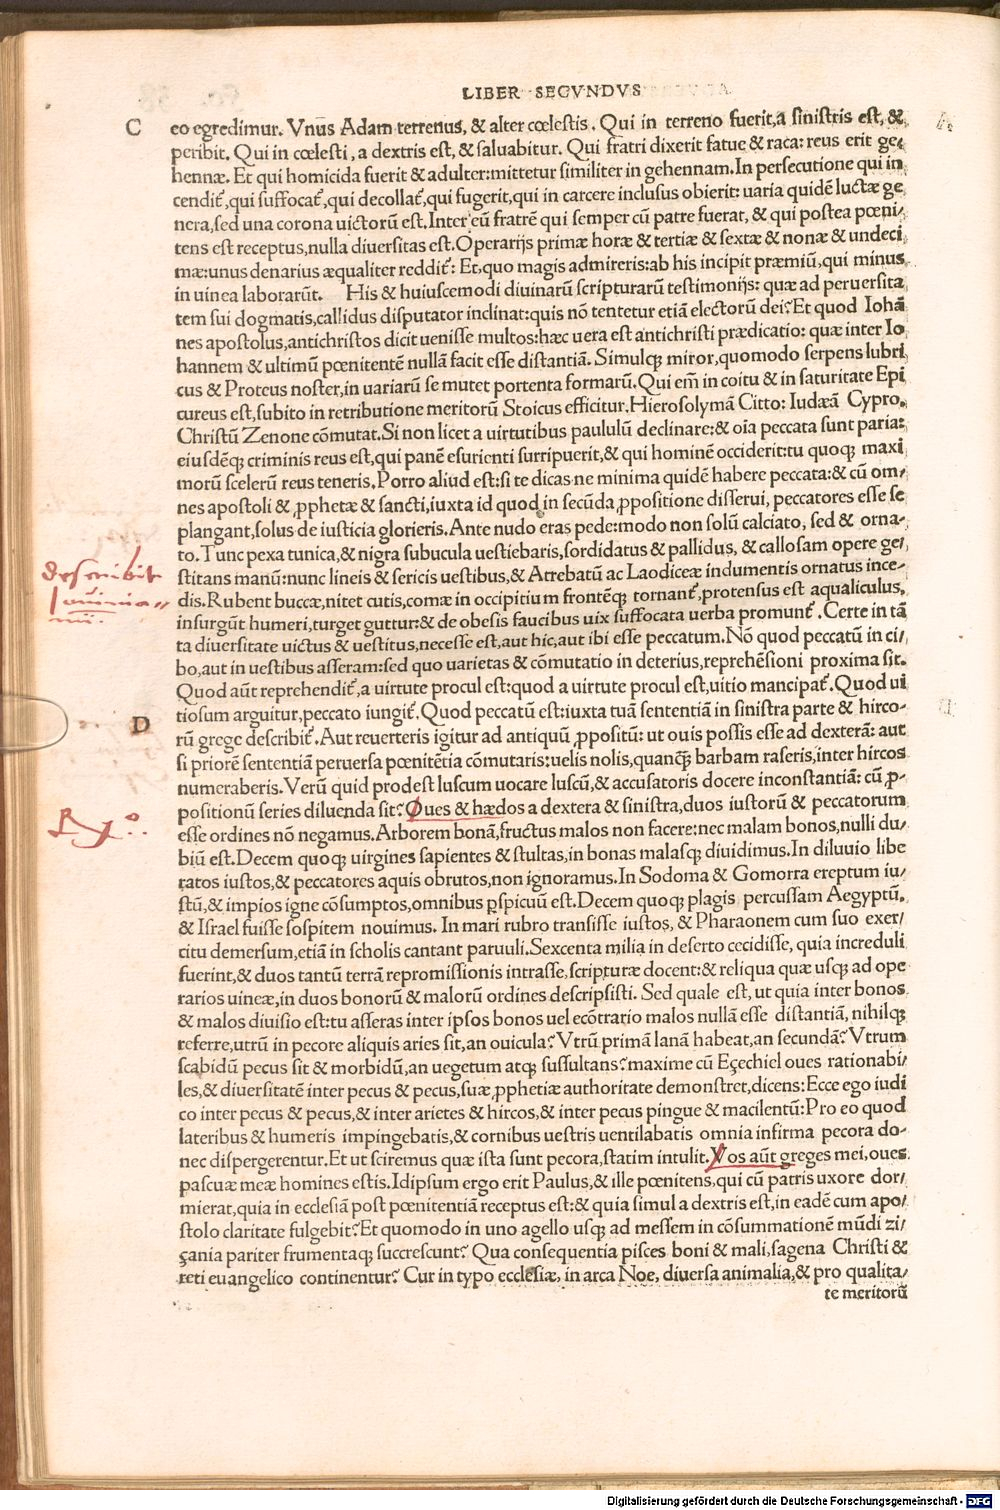 LIBER SEGVNDVS
C
eo egredimur. Vnus Adam terrenus, & alter cœlestis. Qui in terreno fuerit, a sinistris est, &
peribit. Qui in cœlesti, a dextris est, & saluabitur. Qui fratri dixerit fatue & raca: reus erit ge⸗
hennæ. Et qui homicida fuerit & adulter: mittetur similiter in gehennam. In persecutione qui in
cendit᷑, qui suffocat᷑, qui decollat᷑, qui fugerit, qui in carcere inclusus obierit: uaria quidē luctæ ge
nera, sed una corona uictorū est. Inter eū fratrē qui semper cū patre fuerat, & qui postea pœni⸗
tens est receptus, nulla diuersitas est. Operarijs primæ horæ & tertiæ & sextæ & nonæ & undeci
mæ: unus denarius æqualiter reddit᷑: Et, quo magis admireris: ab his incipit præmiū, qui minus
in uinea laborarūt. His & huiuscemodi diuinarū scripturarū testimonijs: quæ ad peruersita
tem sui dogmatis, callidus disputator inclinat: quis nō tentetur etiā electorū dei? Et quod Iohā
nes apostolus, antichristos dicit uenisse multos: hæc uera est antichristi prædicatio: quæ inter Io
hannem & ultimū pœnitentē nullā facit esse distantiā. Simulqꝫ miror, quomodo serpens lubri
cus & Proteus noster, in uariarū se mutet portenta formarū. Qui em̄ in coitu & in saturitate Epi
cureus est, subito in retributione meritorū Stoicus efficitur. Hierosolymā Citto: Iudæā Cypro.
Christū Zenone cōmutat. Si non licet a uirtutibus paululū declinare: & oīa peccata sunt paria:
eiusdēqꝫ criminis reus est, qui panē esurienti surripuerit, & qui hominē occiderit: tu quoqꝫ maxi
morū scelerū reus teneris. Porro aliud est: si te dicas ne minima quidē habere peccata: & cū om⸗
nes apostoli & ꝓphetæ & sancti, iuxta id quod in secūda ꝓpositione disserui, peccatores esse se
plangant, solus de iusticia glorieris. Ante nudo eras pede: modo non solū calciato, sed & orna⸗
to. Tunc pexa tunica, & nigra subucula uestiebaris, sordidatus & pallidus, & callosam opere ge⸗
stitans manū: nunc lineis & sericis uestibus, & Atrebatū ac Laodiceæ indumentis ornatus ince⸗
describit
Iouinia⸗
nū.
dis. Rubent buccæ, nitet cutis, comæ in occipitium frontēqꝫ tornant᷑, protensus est aqualiculus,
insurgūt humeri, turget guttur: & de obesis faucibus uix suffocata uerba promunt᷑. Certe in tā
ta diuersitate uictus & uestitus, necesse est, aut hic, aut ibi esse peccatum. Nō quod peccatū in ci⸗
bo, aut in uestibus asseram: sed quo uarietas & cōmutatio in deterius, reprehēsioni proxima sit.
Quod aūt reprehendit᷑, a uirtute procul est: quod a uirtute procul est, uitio mancipat᷑. Quod ui
D
tiosum arguitur, peccato iungit᷑. Quod peccatū est: iuxta tuā sententiā in sinistra parte & hirco⸗
rū grege describit᷑. Aut reuerteris igitur ad antiquū ꝓpositū: ut ouis possis esse ad dexterā: aut
si priorē sententiā peruersa pœnitētia cōmutaris: uelis nolis, quanqꝫ̄ barbam raseris, inter hircos
numeraberis. Verū quid prodest luscum uocare luscū, & accusatoris docere inconstantiā: cū ꝓ⸗
positionū series diluenda sit? Oues & hædos a dextera & sinistra, duos iustorū & peccatorum
esse ordines nō negamus. Arborem bonā, fructus malos non facere: nec malam bonos, nulli du⸗
biū est. Decem quoqꝫ uirgines sapientes & stultas, in bonas malasqꝫ diuidimus. In diluuio libe
ratos iustos, & peccatores aquis obrutos, non ignoramus. In Sodoma & Gomorra ereptum iu⸗
stū, & impios igne cōsumptos, omnibus ꝑspicuū est. Decem quoqꝫ plagis percussam Aegyptū,
& Israel fuisse sospitem nouimus. In mari rubro transisse iustos, & Pharaonem cum suo exer⸗
citu demersum, etiā in scholis cantant paruuli. Sexcenta milia in deserto cecidisse, quia increduli
fuerint, & duos tantū terrā repromissionis intrasse, scripturæ docent: & reliqua quæ usqꝫ ad ope
rarios uineæ, in duos bonorū & malorū ordines descripsisti. Sed quale est, ut quia inter bonos
& malos diuisio est: tu asseras inter ipsos bonos uel ecōtrario malos nullā esse distantiā, nihilqꝫ
referre, utrū in pecore aliquis aries sit, an ouicula? Vtrū primā lanā habeat, an secundā? Vtrum
scabidū pecus sit & morbidū, an uegetum atqꝫ sussultans? maxime cū Eçechiel oues rationabi⸗
les, & diuersitatē inter pecus & pecus, suæ ꝓphetiæ authoritate demonstret, dicens: Ecce ego iudi
co inter pecus & pecus, & inter arietes & hircos, & inter pecus pingue & macilentū: Pro eo quod
lateribus & humeris impingebatis, & cornibus uestris uentilabatis omnia infirma pecora do⸗
nec dispergerentur. Et ut sciremus quæ ista sunt pecora, statim intulit. Vos aūt greges mei, oues
pascuæ meæ homines estis. Idipsum ergo erit Paulus, & ille pœnitens, qui cū patris uxore dor⸗
mierat, quia in ecclesiā post pœnitentiā receptus est: & quia simul a dextris est, in eadē cum apo⸗
stolo claritate fulgebit? Et quomodo in uno agello usqꝫ ad messem in cōsummationē mūdi zi⸗
çania pariter frumentaqꝫ succrescunt? Qua consequentia pisces boni & mali, sagena Christi &
reti euangelico continentur? Cur in typo ecclesiæ, in arca Noe, diuersa animalia, & pro qualita⸗
te meritorū
Digitalisierung gefördert durch die Deutsche Forschungsgemeinschaft - DFG